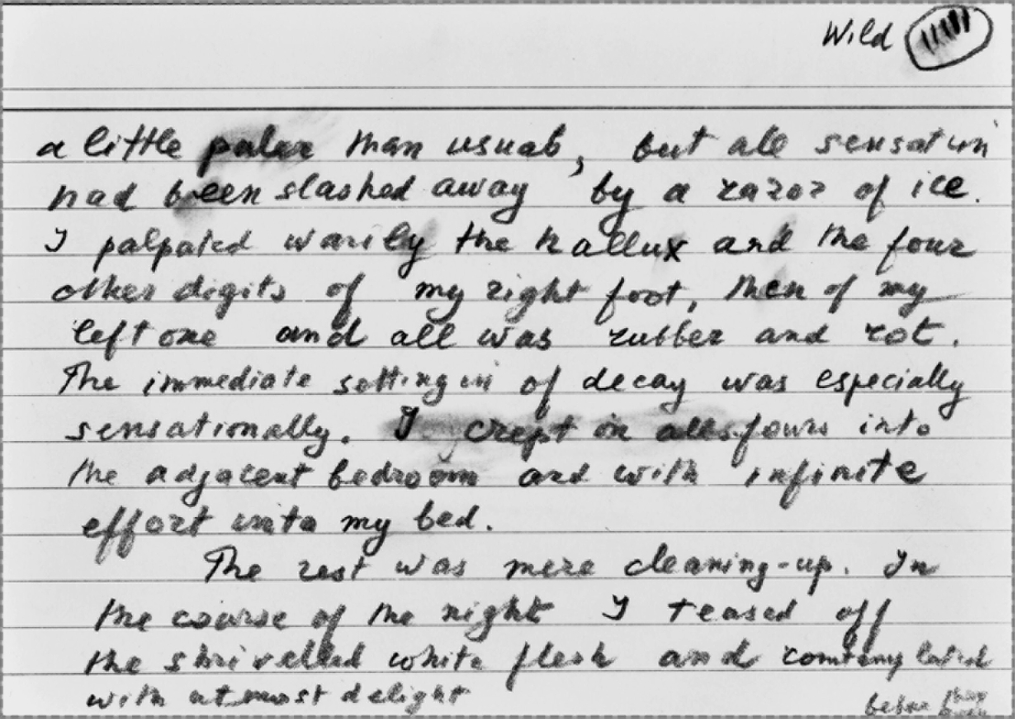 Wild
a little paler than usual, but all sensation
had been slashed away by a razor of ice.
I palpated warily the hallux and the four
other digits of my right foot, then of my
left one and all was rubber and rot.
The immediate setting in of decay was especially
sensationally. I crept on all fours into
the adjacent bedroom and with infinite
effort into my bed.
The rest was mere cleaning-up. In
the course of the night I teased off
the shrivelled white flesh and contemplated
with utmost delight